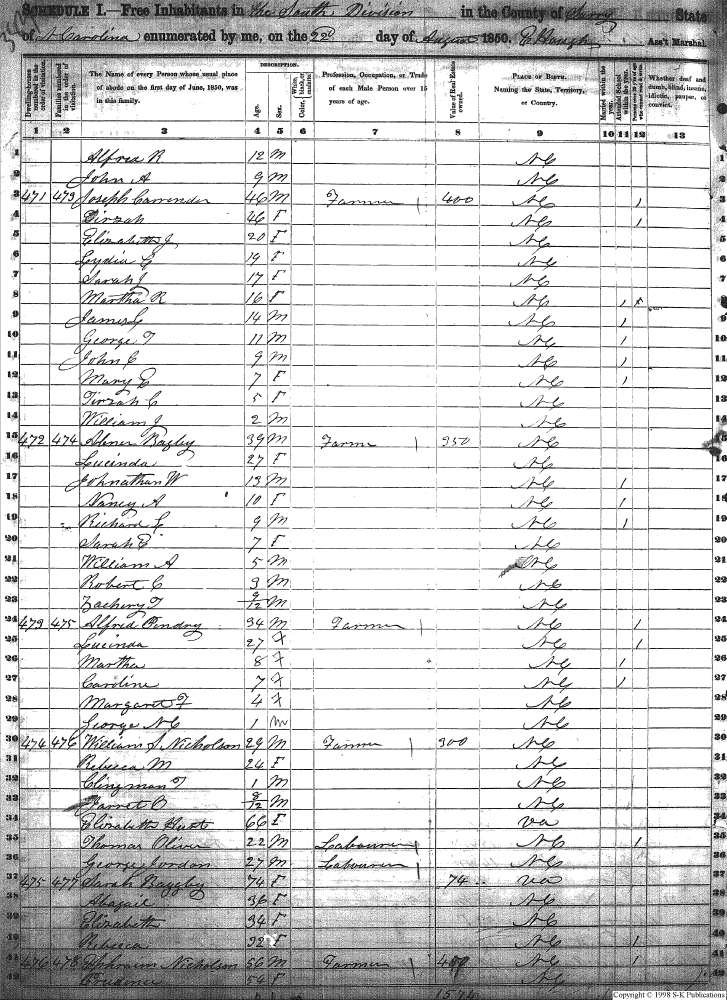 SCHEDULE I.—Free Inhabitants in the South Division in the County of Surry State
of N Carolina enumerated by me, on the 22d day of August 1850. Ass't Marshal.
Dwelling-houses numbered in the order of visitation.
Families numbered in the order of visitation.
The Name of every Person whose usual place of abode on the first day of June, 1850, was in this family.
DESCRIPTION.
Age.
Sex.
White, black, or mulatto.
Color,
Profession, Occupation, or Trade of each Male Person over 15 years of age.
Value of Real Estate owned.
PLACE OF BIRTH. Naming the State, Territory, or Country.
Married within the year.
Attended School within the year.
Whether deaf and dumb, blind, insane, idiotic, pauper, or convict.
1 2 3 4 5 6 7 8 9 10 11 12 13
1 Alfred R 12 M NC 1
2 John A 9 M NC 2
3 471 473 Joseph Carrender 46 M Farmer 1 400 NC 1 3
4 Tirzah 46 F NC 1 4
5 Elizabeth J 20 F NC 5
6 Lydia E 19 F NC 6
7 Sarah J 17 F NC 7
8 Martha R 16 F NC 1 8
9 James 14 M NC 1 9
10 George T 11 M NC 1 10
11 John C 9 M NC 1 11
12 Mary E 7 F NC 1 12
13 Tirzah C 5 F NC 13
14 William J 2 M NC 14
15 472 474 Abner Bagley 39 M Farmer 1 350 NC 15
16 Lucinda 27 F NC 16
17 Johnathan W 13 M NC 1 17
18 Nancy A 10 F NC 1 18
19 Richard L 9 M NC 1 19
20 Sarah E 7 F NC 20
21 William A 5 M NC 21
22 Robert C 3 M NC 22
23 Zachery T 9/12 M NC 23
24 473 475 Alfred Pindry 34 M Farmer 1 NC 1 24
25 Lucinda 27 F NC 1 25
26 Martha 8 F NC 1 26
27 Caroline 7 F NC 1 27
28 Margaret F 4 F NC 28
29 George NC 1 M NC 29
30 474 476 William S Nicholson 29 M Farmer 1 300 NC 30
31 Rebecca M 24 F NC 31
32 Clingman T 1 M NC 32
33 Jarret O 8/12 M NC 33
34 Elizabeth Hust 66 F Va 34
35 Thomas Oliver 22 M Labourer NC 1 35
36 George Jordon 27 M Labourer NC 36
37 475 477 Sarah Baggley 74 F 74 Va 37
38 Abagail 36 F NC 38
39 Elizabeth 34 F NC 39
40 Rebecca 32 F NC 1 40
41 476 478 Ephraim Nicholson 56 M Farmer 1 400 NC 1 41
42 Prudence 54 F NC 42
Copyright © 1998 S-K Publications